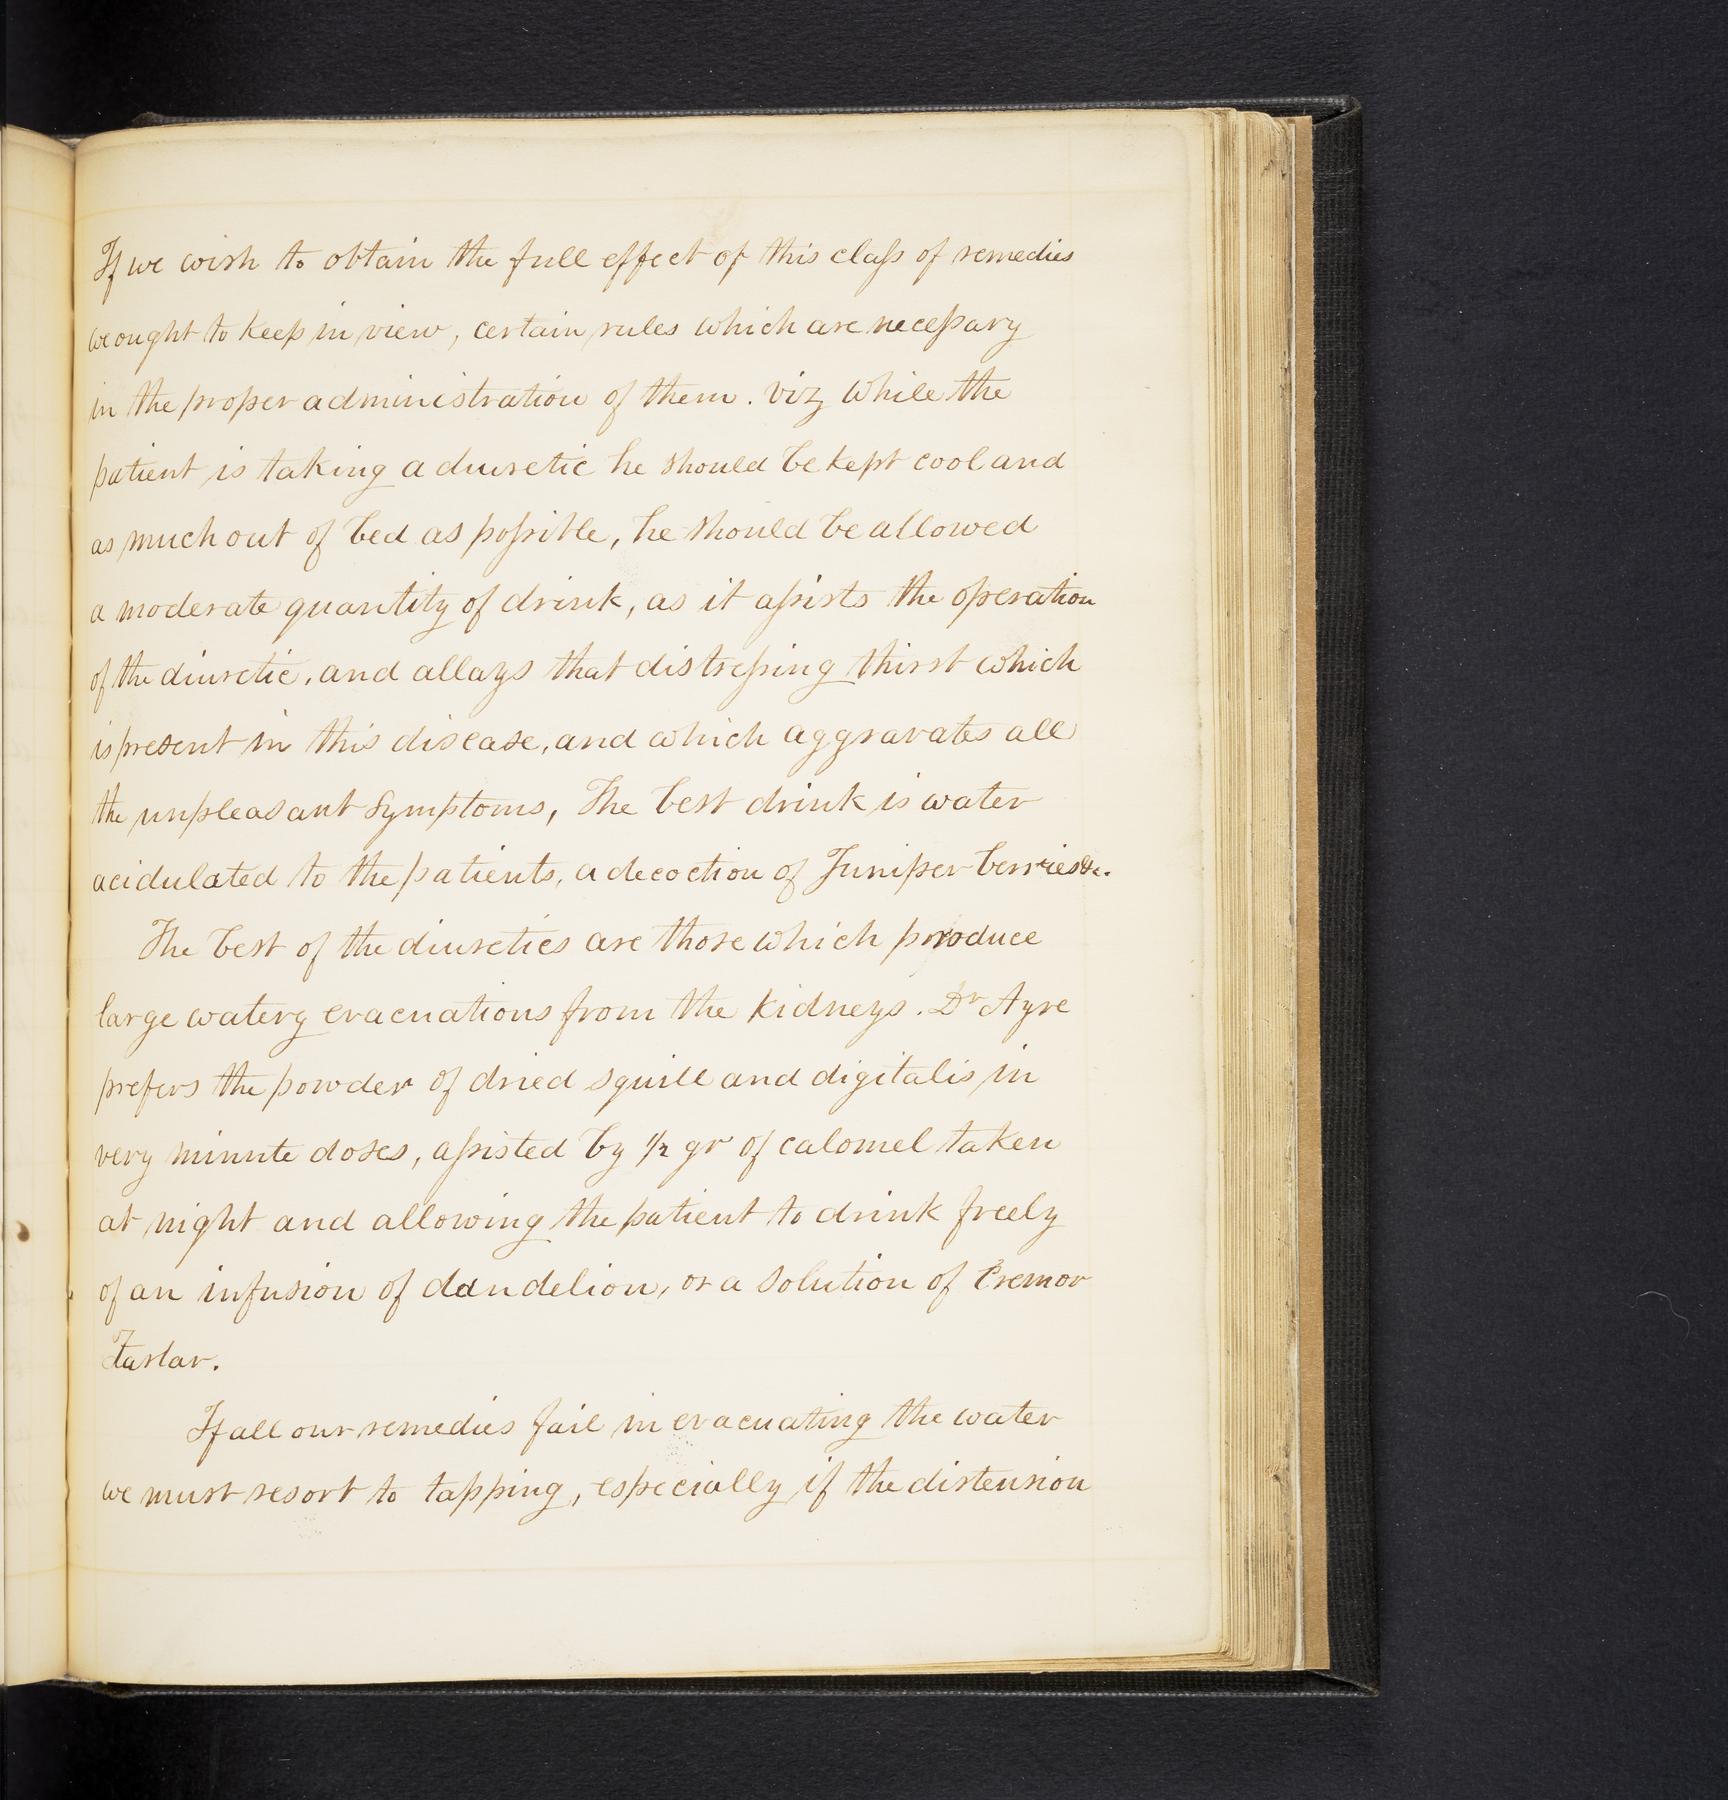 If we wish to obtain the full effect of this class of remedies
we ought to keep in view, certain rules which are necessary
in the proper administration of them. viz while the
patient is taking a diuretic he should be kept cool and
as much out of bed as possible, he should be allowed
a moderate quantity of drink, as it assists the operation
of the diuretic, and allays that distressing thirst which
is present in this disease, and which aggravates all
the unpleasant symptoms, The best drink is water
acidulated to the patients, a decoction of Juniper berries &c.
The best of the diuretics are those which produce
large watery evacuations from the kidneys. Dr Ayre
prefers the powder of dried squill and digitalis in
very minute doses, assisted by 1/2 gr of calomel taken
at night and allowing the patient to drink freely
of an infusion of dandelion, or a solution of Cremor
Tartar.
If all our remedies fail in evacuating the water
we must resort to tapping, especially if the distension